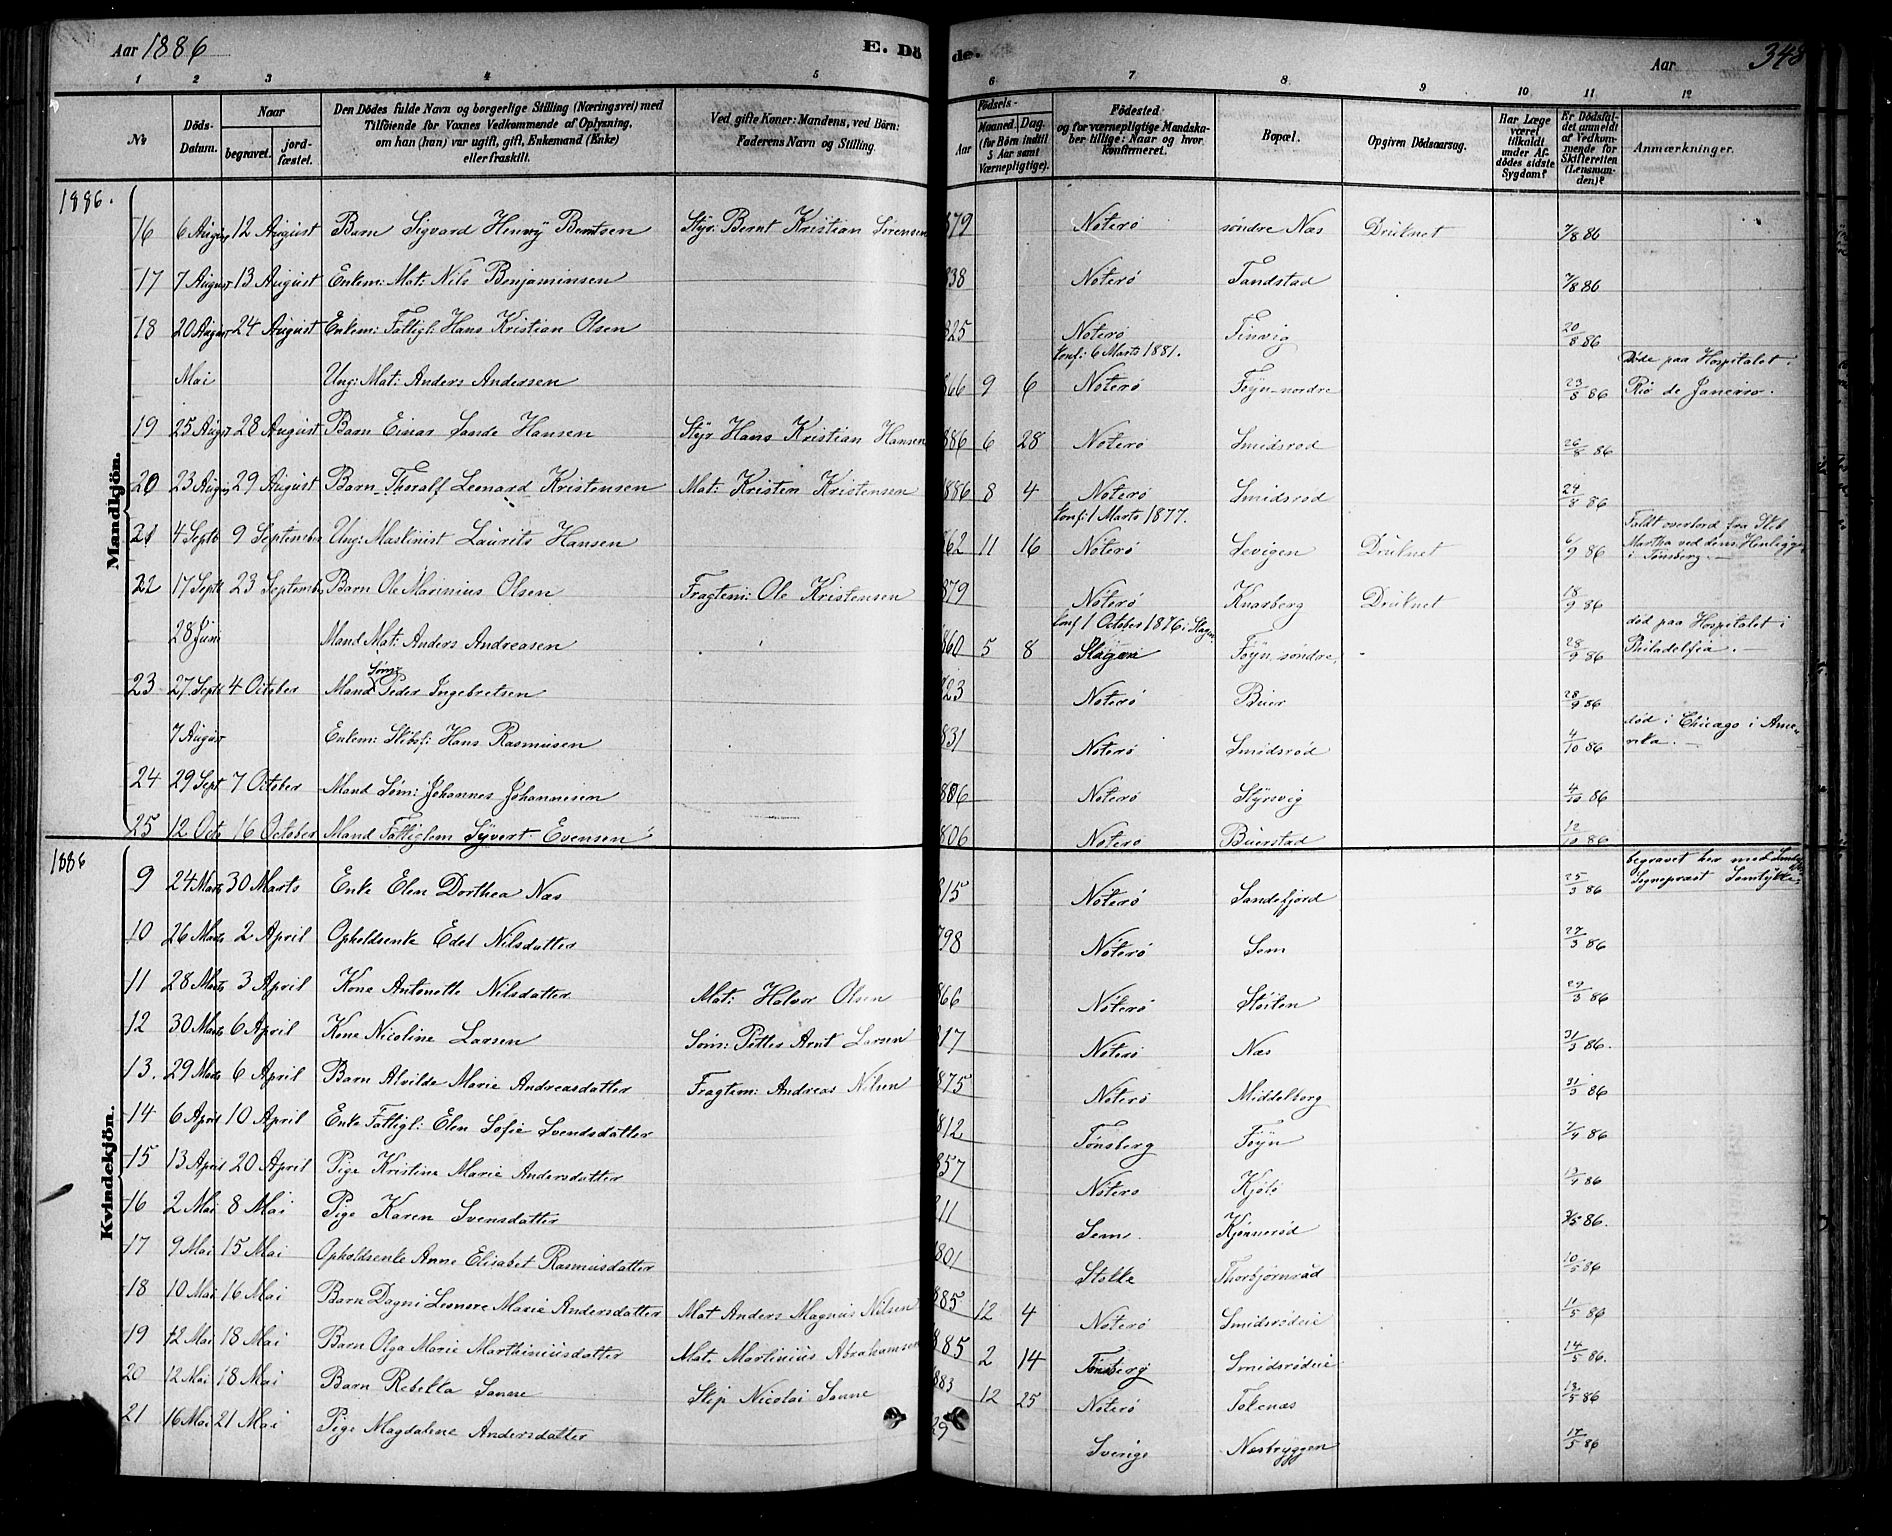 Aar 1886 E. Dö de. Aar 348
1 2 3 4 5 6 7 8 9 10 11 12
No Döds-Datum. Naar begravet. jordfæstet. Den Dödes fulde Navn og borgerlige Stilling (Næringsvei) med Tilföiende for Voxnes Vedkommende af Oplysning, om han (hun) var ugift, gift, Enkemand (Enke) eller fraskilt. Ved gifte Koner: Mandens, ved Börn: Faderens Navn og Stilling. Aar Födsels- Maaned. Dag. (for Börn indtil 5 Aar samt Værnepligtige). Födested og for værnepligtige Mandskaber tillige: Naar og hvor konfirmeret. Bopæl. Opgiven Dödsaarsag. Har Læge været tilkaldt under Afdödes sidste Sygdom? Er Dödsfaldet anmeldt af Vedkommende for Skifteretten (Lensmanden)? Anmærkninger.
Mandkjön.
1886.
16 6 August 12 August Barn Sigvard Henry Berntsen Styr. Bernt Kristian Sørensen 879 Noterø søndre Næs Druknet 7/8 86
17 7 August 13 August Enkem: Mat: Nils Benjaminsen 838 Noterø Tandstad 7/8 86
18 20 August 24 August Enkem: Fattigl: Hans Kristian Olsen 825 Noterø Tinvig 20/8 86
Mai Ung: Mat: Anders Andersen 866 9 6 konf: 6 Marts 1881. Noterø Føyn nordre 23/8 86 Døde paa Hospitalet i Rio de Janeiro.
19 25 August 28 August Barn Einar Sande Hansen Styr Hans Kristian Hansen 886 6 28 Noterø Smidsrød 26/8 86
20 23 August 29 August Barn Thoralf Leonard Kristensen Mat: Kristen Kristensen 1886 8 4 Noterø Smidsrød 24/8 86
21 4 Septb 9 September Ung: Maskinist Laurits Hansen 862 11 16 konf: 1 Marts 1877. Noterø Levigen Druknet 6/9 86 Faldt overbord fra Skib Martha ved dens Henligge i Tønsberg.
22 17 Septb 23 September Barn Ole Marinius Olsen Fragtem: Ole Kristensen 879 Noterø Knarberg Druknet 18/9 86
28 Juni Mand Mat: Anders Andreasen 860 5 8 konf 1 October 1876 i Slagen Slagen Føyn søndre 28/9 86 død paa Hospitalet i Philadelfia.
23 27 Septb 4 October Mand Søm: Peder Ingebretsen 823 Noterø Buer 28/9 86
7 August Enkem: Skibsf: Hans Rasmusen 831 Noterø Smidsrød 4/10 86 død i Chicago i Amerika.
24 29 Sept 7 October Mand Søm: Johannes Johannesen 806 Noterø Styrsvig 4/10 86
25 12 Oct 16 October Mand Fattiglem Syvert Evensen 806 Noterø Buerstad 12/10 86
Kvindekjön.
1886
9 24 Marts 30 Marts Enke Elen Dorthea Næs 815 Noterø Sandefjord 25/3 86 begravet her med Sognepræst Samtykke
10 26 Marts 2 April Opholdsenke Edel Nilsdatter 798 Nøterø Sem 27/3 86
11 28 Marts 3 April Kone Antonette Nilsdatter Mat: Halvor Olsen 866 Nøterø Støiten 29/3 86
12 30 Marts 6 April Kone Nicoline Larsen Søm: Petter Arnt Larsen 817 Nøterø Næs 31/3 86.
13. 29 Marts 6 April Barn Alvilde Marie Andreasdatter Fragtem: Andreas Nilsen 875 Nøterø Middelborg 31/3 86
14 6 April 10 April Enke Fattigl: Elen Sofie Svendsdatter 1812 Tønsberg Føyn 7/4 86
15 13 April 20 April Pige Kristine Marie Andersdatter 857 Nøterø Kjøle 13/4 86
16 2 Mai 8 Mai Pige Karen Svensdatter 811 Sem Kjønnerød 3/5 86.
17 9 Mai 15 Mai Opholdsenke Anne Elisabet Rasmusdatter 1801 Stokke Thorbjørnrød 10/5 86
18 10 Mai 16 Mai Barn Dagni Leonore Marie Andersdatter Mat Anders Magnus Nilsen 885 12 4 Nøterø Smidsrødeie 11/5 86
19 12 Mai 18 Mai Barn Olga Marie Marthiniusdatter Mat. Martinius Abrahamsen 885 2 14 Tønsberg Smidsrødeie 14/5 86.
20 12 Mai 18 Mai Barn Rebekka Sanne Skip Nicolai Sanne 1883 12 25 Nøterø Tokenæs 13/5 86
21 16 Mai 21 Mai Pige Magdalene Andersdatter 29 Sverige Næsbryggen 17/5 86